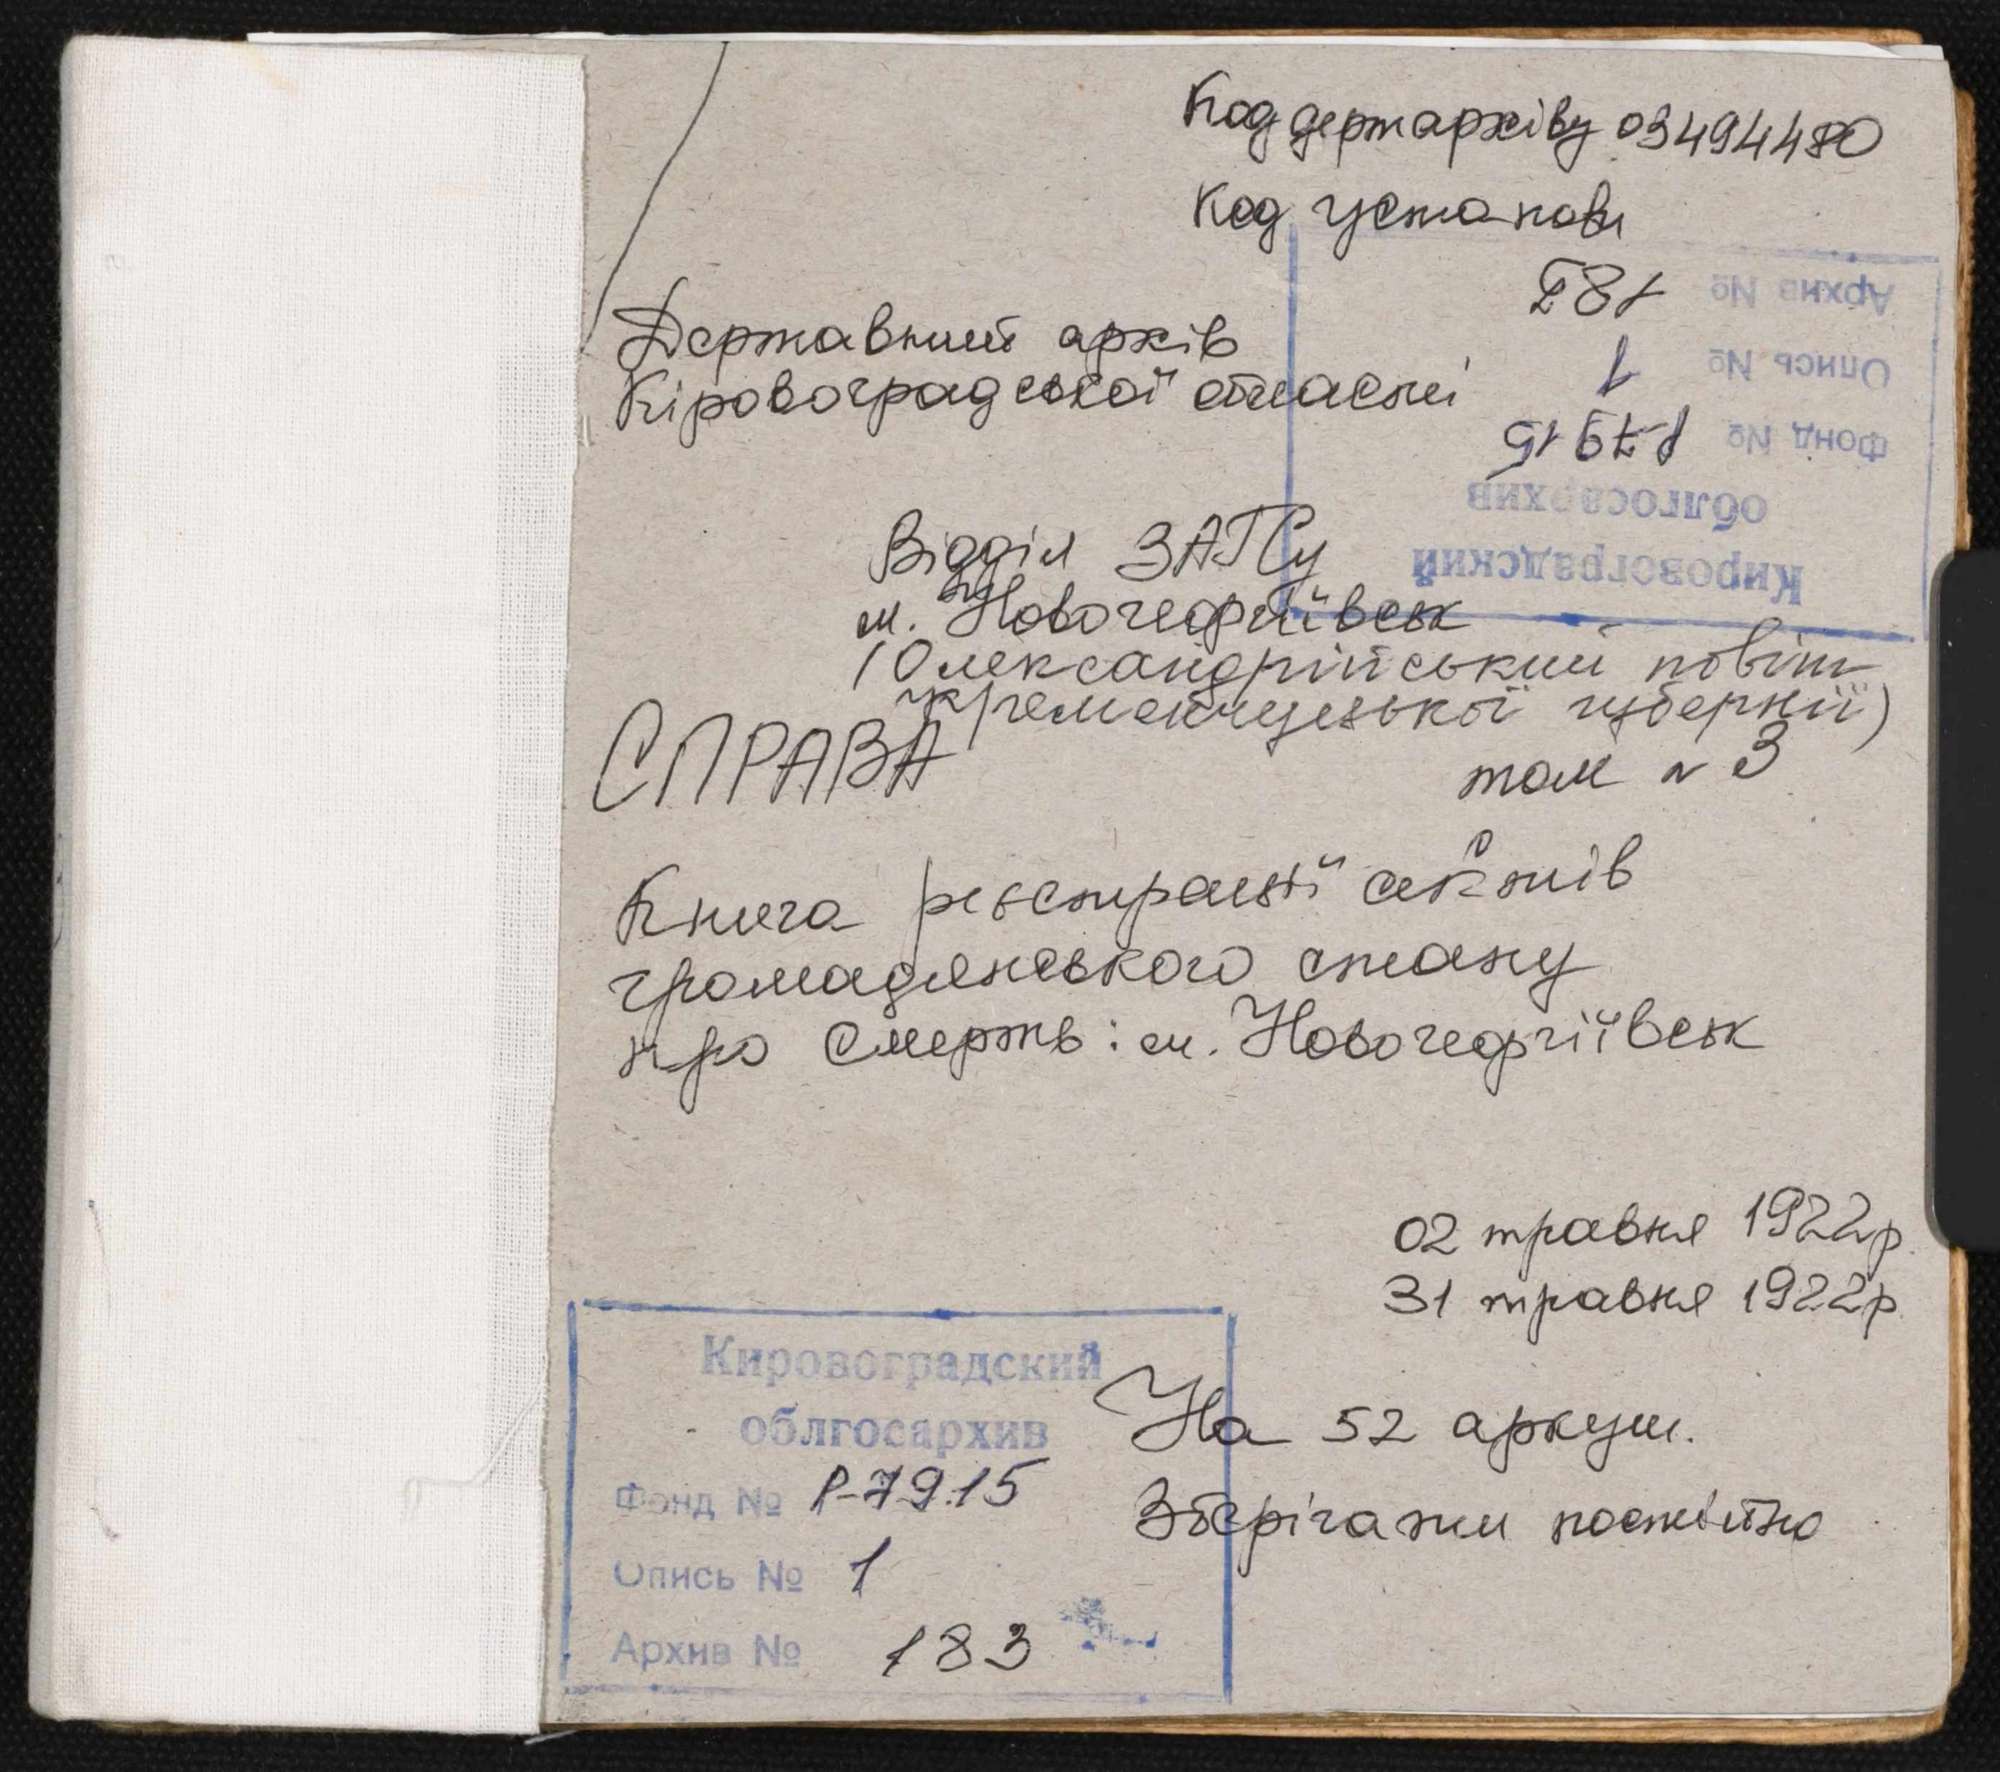 Код держархіву 03494480
Код установи
Архив № 183
Опись № 1
Фонд № Р-7915
облгосархив
Кировоградский
Державний архів
Кіровоградської області
Відділ ЗАГСу
м. Новогеоргіївськ
(Олександрійський повіт
Кременчуцької губернії)
СПРАВА том № 3
Книга реєстрації актів
громадянського стану
про смерть: м. Новогеоргіївськ
02 травня 1922р.
31 травня 1922р.
На 52 аркуш.
Зберігати постійно
Кировоградский
облгосархив
Фонд № Р-7915
Опись № 1
Архив № 183